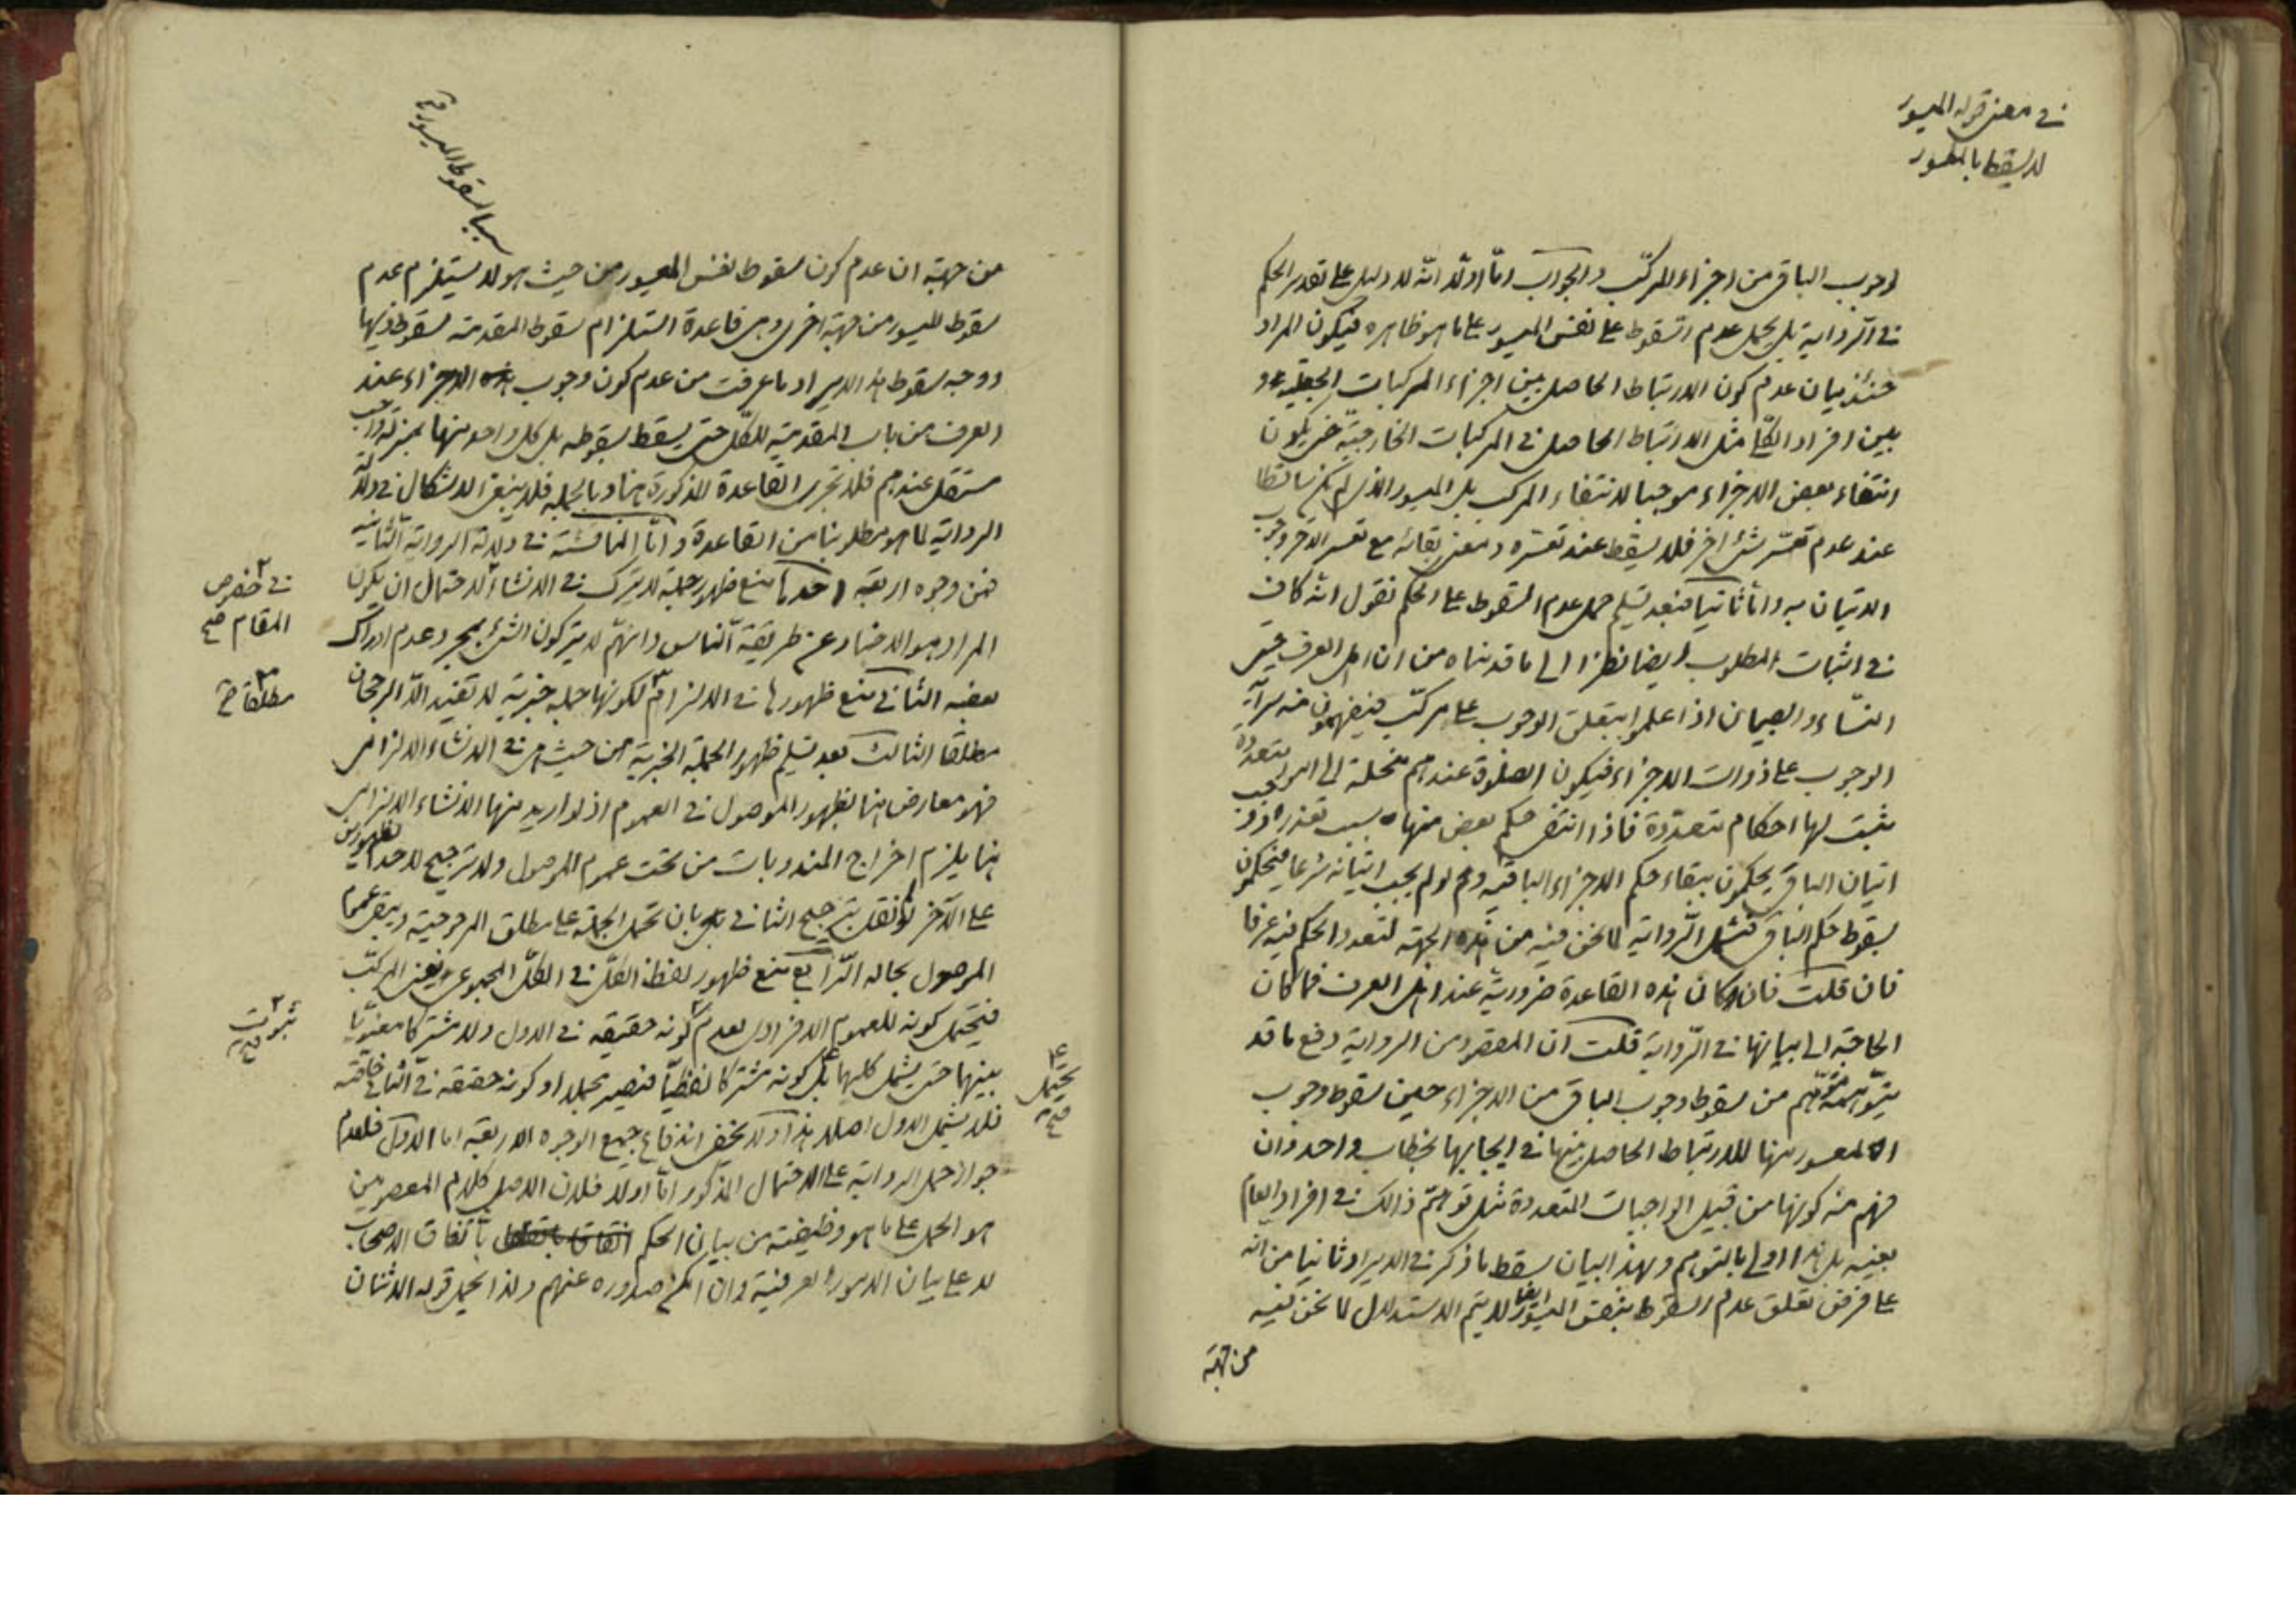 في معنى قوله الميسور
لا يسقط بالمعسور
لوجوب الباقي من اجزاء المركّب والجواب امّا اولا انّه لا دليل على تقدير الحكم
في الرواية بل يحمل عدم السّقوط على نفس الميسور على ما هو ظاهره فيكون المراد
حينئذ بيان عدم كون الارتباط الحاصل بين اجزاء المركبات الجعلية و
بين افراد الكلّ مثل الارتباط الحاصل في المركبات الخارجيّة حتى يكون
انتفاء بعض الاجزاء موجبا لانتفاء المركب بل الميسور الذي لم يكن ساقطا
عند عدم تعسّر شئ اخر فلا يسقط عند تعسّره ومعنى بقائه مع تعسر الاخر وجوب
الاتيان به وامّا ثانيا فبعد تسليم حمل عدم السقوط على الحكم نقول انّه كاف
في اثبات المطلوب ايضا نظرا الى ما قدمناه من ان اهل العرف حتى
النساء والصبيان اذا علموا بتعلق الوجوب على مركّب فيفهمون منه سراية
الوجوب على ذوات الاجزاء فيكون الصلوة عندهم منحلة الى امور متعددة
يثبت لها احكام متعدّدة فاذا انتفى حكم بعض منها بسبب تعذره
اتيان الباقي يحكمون ببقاء حكم الاجزاء الباقية ولو لم يجب اتيانه شرعا فيحكمون
بسقوط حكم الباقي فتشمل الرّواية لما نحن فيه من هذه الجهة لتعدد الحكم فيه عرفا
فان قلت فان كان هذه القاعدة ضرورية عند اهل العرف فما كان
الحاجة الى بيانها في الرّواية قلت ان المقصود من الرواية دفع ما قد
يتوهمه متوهّم من سقوط وجوب الباقي من الاجزاء حين سقوط وجوب
المعسور منها للارتباط الحاصل بينها في ايجابها بخطاب واحد وان
فهم منه كونها من قبيل الواجبات المتعددة مثل توهّم ذالك في افراد العام
بعينه بل هذا اولى بالتوهم وبهذا البيان سقط ما ذكر في الايراد ثانيا من انه
على فرض تعلق عدم السقوط بنفس الميسور ايضا لا يتم الاستدلال لما نحن فيه
من جهة
بسبب السقوط الميسور
من جهة ان عدم كون سقوط نفس المعسور من حيث هو لا يستلزم عدم
سقوط الميسور من جهة اخرى وهي قاعدة استلزام سقوط المقدمة لسقوط ذيها
ووجه سقوط هذا الايراد ما عرفت من عدم كون وجوب هذه الاجزاء عند
العرف من باب المقدمية للكلّ حتى يسقط بسقوطه بل كل واحد منها بمنزلة واجب
مستقل عندهم فلا تجري القاعدة المذكورة هنا وبالجملة فلا ينبغي الاشكال في دلالة
الرواية لما هو مطلوبنا من القاعدة وامّا المناقشة في دلالة الرواية الثانية
فمن وجوه اربعة احدها منع ظهور جملة لا يترك في الانشاء لاحتمال ان يكون
في خصوص
المقام صح
المراد هو الاخبار عن طريقة النّاس وانهّم لا يتركون الشئ بمجرد عدم ادراك
بعضه الثاني منع ظهورها في الالزام لكونها جملة خبرية لا تفيد الّا الرجحان
مطلقا صح
مطلقا الثالث بعد تسليم ظهور الجملة الخبرية من حيث هي في الانشاء الالزامي
فهو معارض هنا بظهور الموصول في العموم اذ لو اريد منها الانشاء الالزامي
هنا يلزم اخراج المندوبات من تحت عموم الموصول ولا ترجيح لاحد الظهورين
على الآخر لو لم نقل بترجيح الثاني بان تحمل الجملة على مطلق المرجوحية ويبقى عموم
الموصول بحاله الرّابع منع ظهور لفظ الكلّ في الكلّ المجموعي يعني المركّب
فيحتمل كونه للعموم الافرادي لعدم كونه حقيقة في الاول ولا مشتركا معنويّا
ثبوت صح
بينهما حتى يشمل كليهما بل كونه مشتركا لفظيّا فيصير مجملا او كونه حقيقة في الثاني خاصّة
يحتمل صح
فلا يشمل الاول اصلا هذا ولا يخفى اندفاع جميع الوجوه الاربعة اما الاول فلعدم
جواز حمل الرواية على الاحتمال المذكور امّا اولا فلان الاصل في كلام المعصومين
هو الحمل على ما هو وظيفته من بيان الحكم باتفاق الاصحاب
لا على بيان الامور العرفية وان امكن صدوره عنهم ولذا يحمل قوله الاثنان